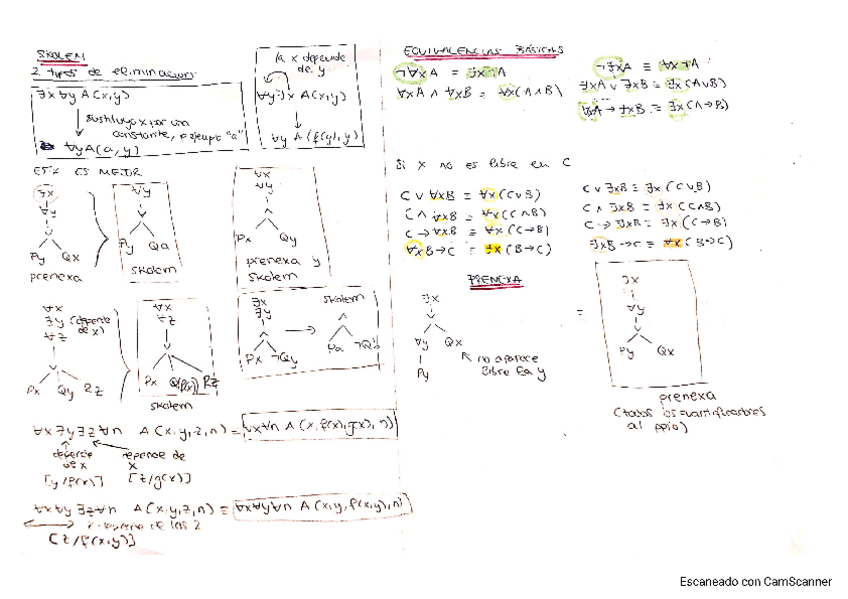 SKOLEM
2 tipos de eliminación:
∃x∀y A(x,y)
sustituyo x por una
constante, ejempl "a"
∀y A(a,y)
la x depende
de y
∀y∃x A(x,y)
∀y A(f(y),y)
ESTA ES MEJOR
∃x
∀y
∧
Py Qx
prenexa
∀y
∧
Py Qa
skolem
∀x
∀y
∧
Px Qy
prenexa y
skolem
∀x
∃y (depende
de x)
∀z
Px Qy Rz
∀x
∀z
Px Q(f(x)) Rz
skolem
∃x
∃y
Px ¬Qy
→
skolem
Pa ¬Qb
∀x∃y∃z∀n A(x,y,z,n) = ∀x∀n A(x,f(x),g(x),n)
depende
de x
depende de
x
[y/f(x)] [z/g(x)]
∀x∀y∃z∀n A(x,y,z,n) = ∀x∀y∀n A(x,y,f(x,y),n)
de las 2
[z/f(x,y)]
EQUIVALENCIAS BÁSICAS
¬∀xA ≡ ∃x¬A
∀xA ∧ ∀xB ≡ ∀x(A∧B)
¬∃xA ≡ ∀x¬A
∃xA ∨ ∃xB ≡ ∃x(A∨B)
∀xA → ∃xB ≡ ∃x(A→B)
Si x no es libre en C
C ∨ ∀xB ≡ ∀x(C∨B)
C ∧ ∀xB ≡ ∀x(C∧B)
C → ∀xB ≡ ∀x(C→B)
∀xB → C ≡ ∃x(B→C)
C ∨ ∃xB ≡ ∃x(C∨B)
C ∧ ∃xB ≡ ∃x(C∧B)
C → ∃xB ≡ ∃x(C→B)
∃xB → C ≡ ∀x(B→C)
PRENEXA
∃x
∀y Qx
Py
no aparece
libre la y
=
∃x
∀y
Py Qx
prenexa
(todos los cuantificadores
al ppio)
Escaneado con CamScanner